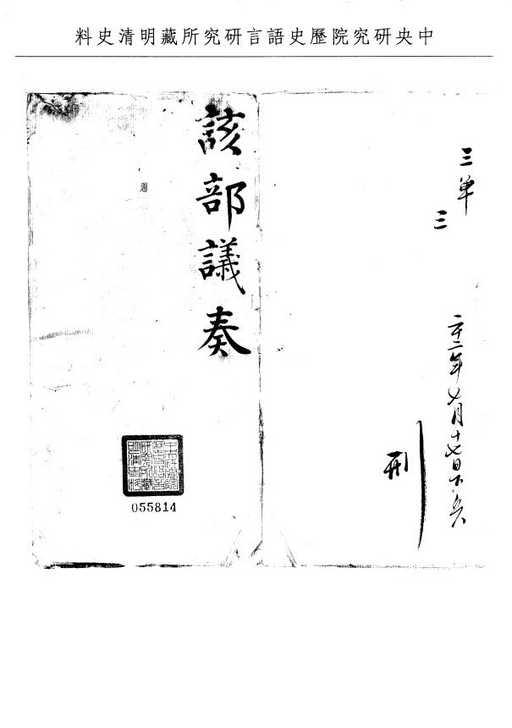 中央研究院歷史語言研究所藏明清史料
三單
三
二十二年七月十七日下兵
刑
該部議奏
055814